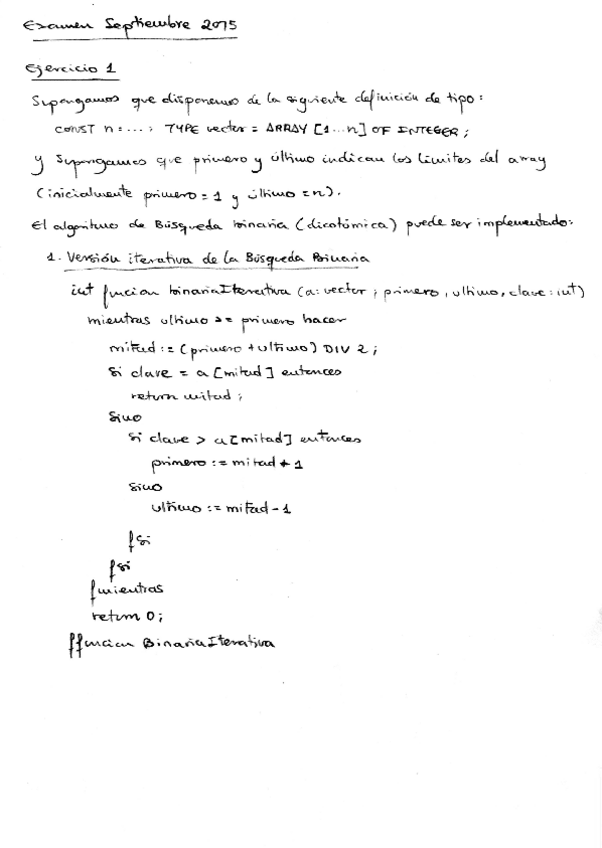 Examen Septiembre 2015
Ejercicio 1
Supongamos que disponemos de la siguiente definición de tipo:
CONST n = ...; TYPE vector = ARRAY [1...n] OF INTEGER;
y supongamos que primero y último indican los límites del array
(inicialmente primero = 1 y último = n).
El algoritmo de Búsqueda binaria (dicotómica) puede ser implementado:
1. Versión iterativa de la Búsqueda Binaria
int función binariaIterativa (a: vector; primero, ultimo, clave: int)
mientras ultimo >= primero hacer
mitad := (primero + ultimo) DIV 2;
si clave = a [mitad] entonces
return mitad;
sino
si clave > a [mitad] entonces
primero := mitad + 1
sino
ultimo := mitad - 1
fsi
fsi
fmientras
return 0;
ffuncion BinariaIterativa